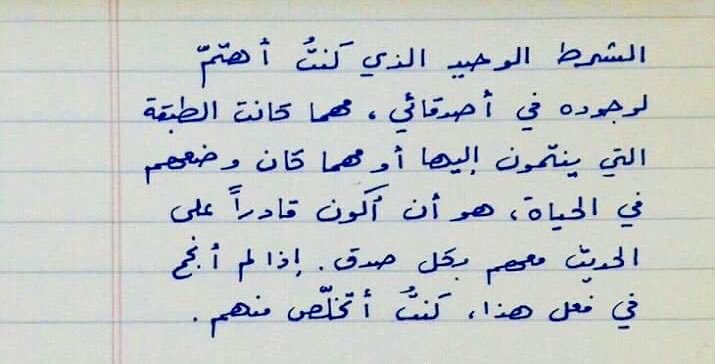 الشرط الوحيد الذي كنتُ أهتمّ
لوجوده في أصدقائي، مهما كانت الطبقة
التي ينتمون إليها أو مهما كان وضعهم
في الحياة، هو أن أكون قادراً على
الحديث معهم بكل صدق. إذا لم أنجح
في فعل هذا، كنتُ أتخلّص منهم.